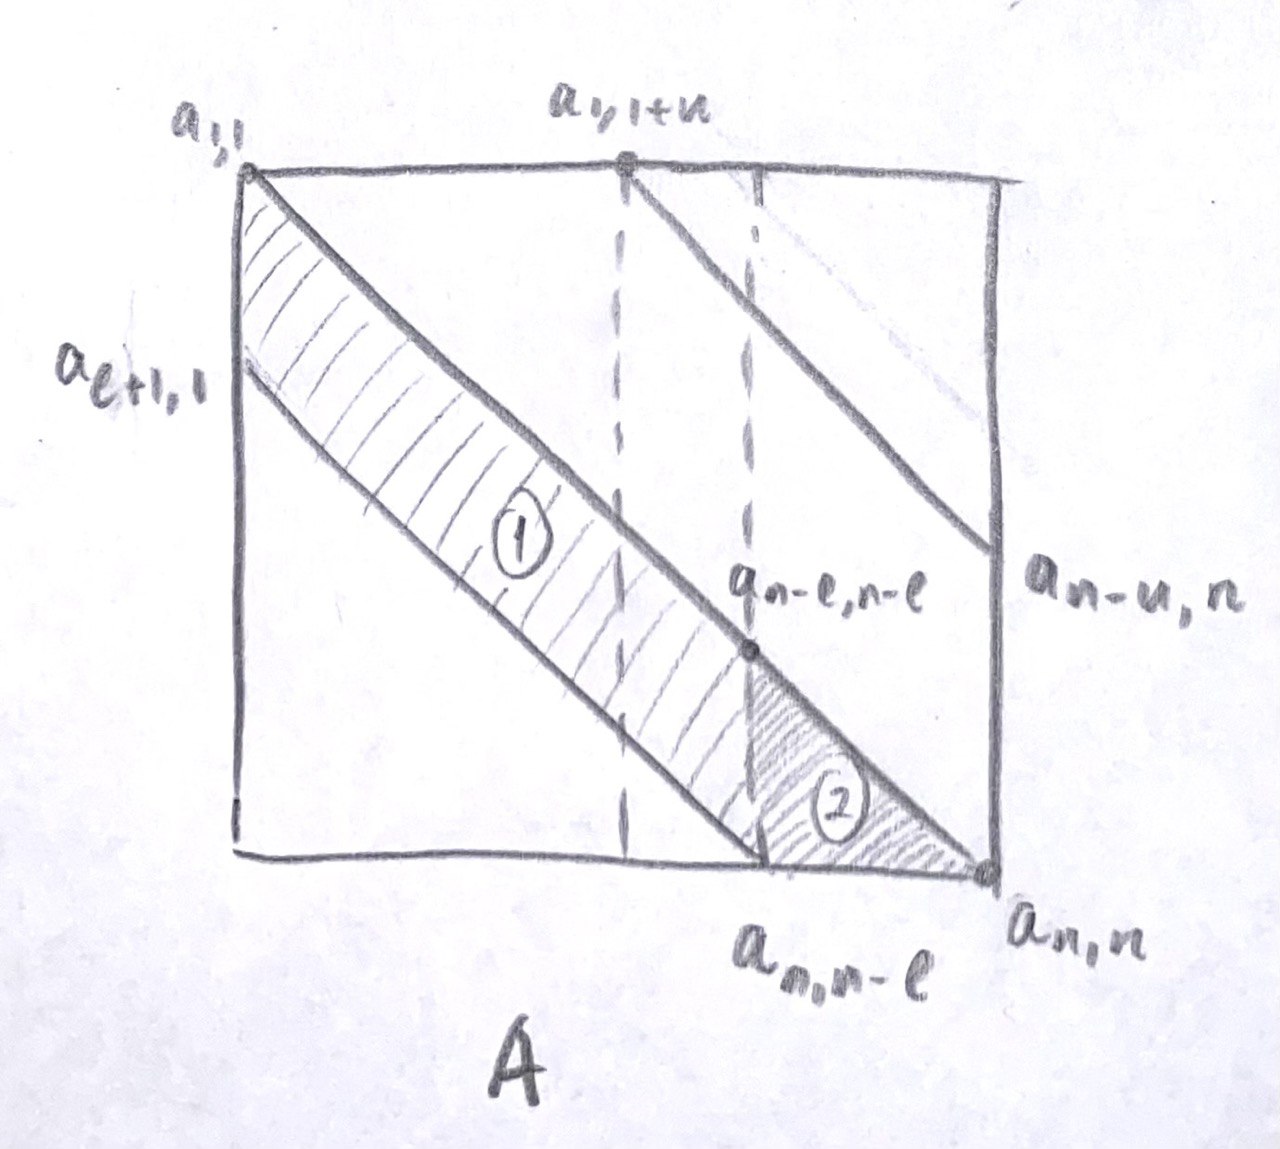 a1,1
a1,1+u
ae+1,1
1
an-e,n-e
an-u,n
2
an,n
an,n-e
A